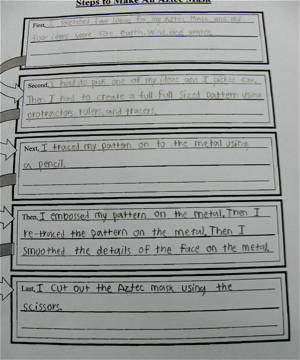 Steps to Make An Aztec Mask
First, I sketched four ideas for my Aztec Mask and my
four ideas were fire, Earth, Wind, and water.
Second, I had to pick one of my ideas and I picked
Then I had to create a full full sized pattern using
protractors, rulers, and tracers.
Next, I traced my pattern on to the metal using
a pencil.
Then, I embossed my pattern on the metal. Then I
re-traced the pattern on the metal. Then I
smoothed the details of the face on the metal.
Last, I cut out the Aztec mask using the
scissors.